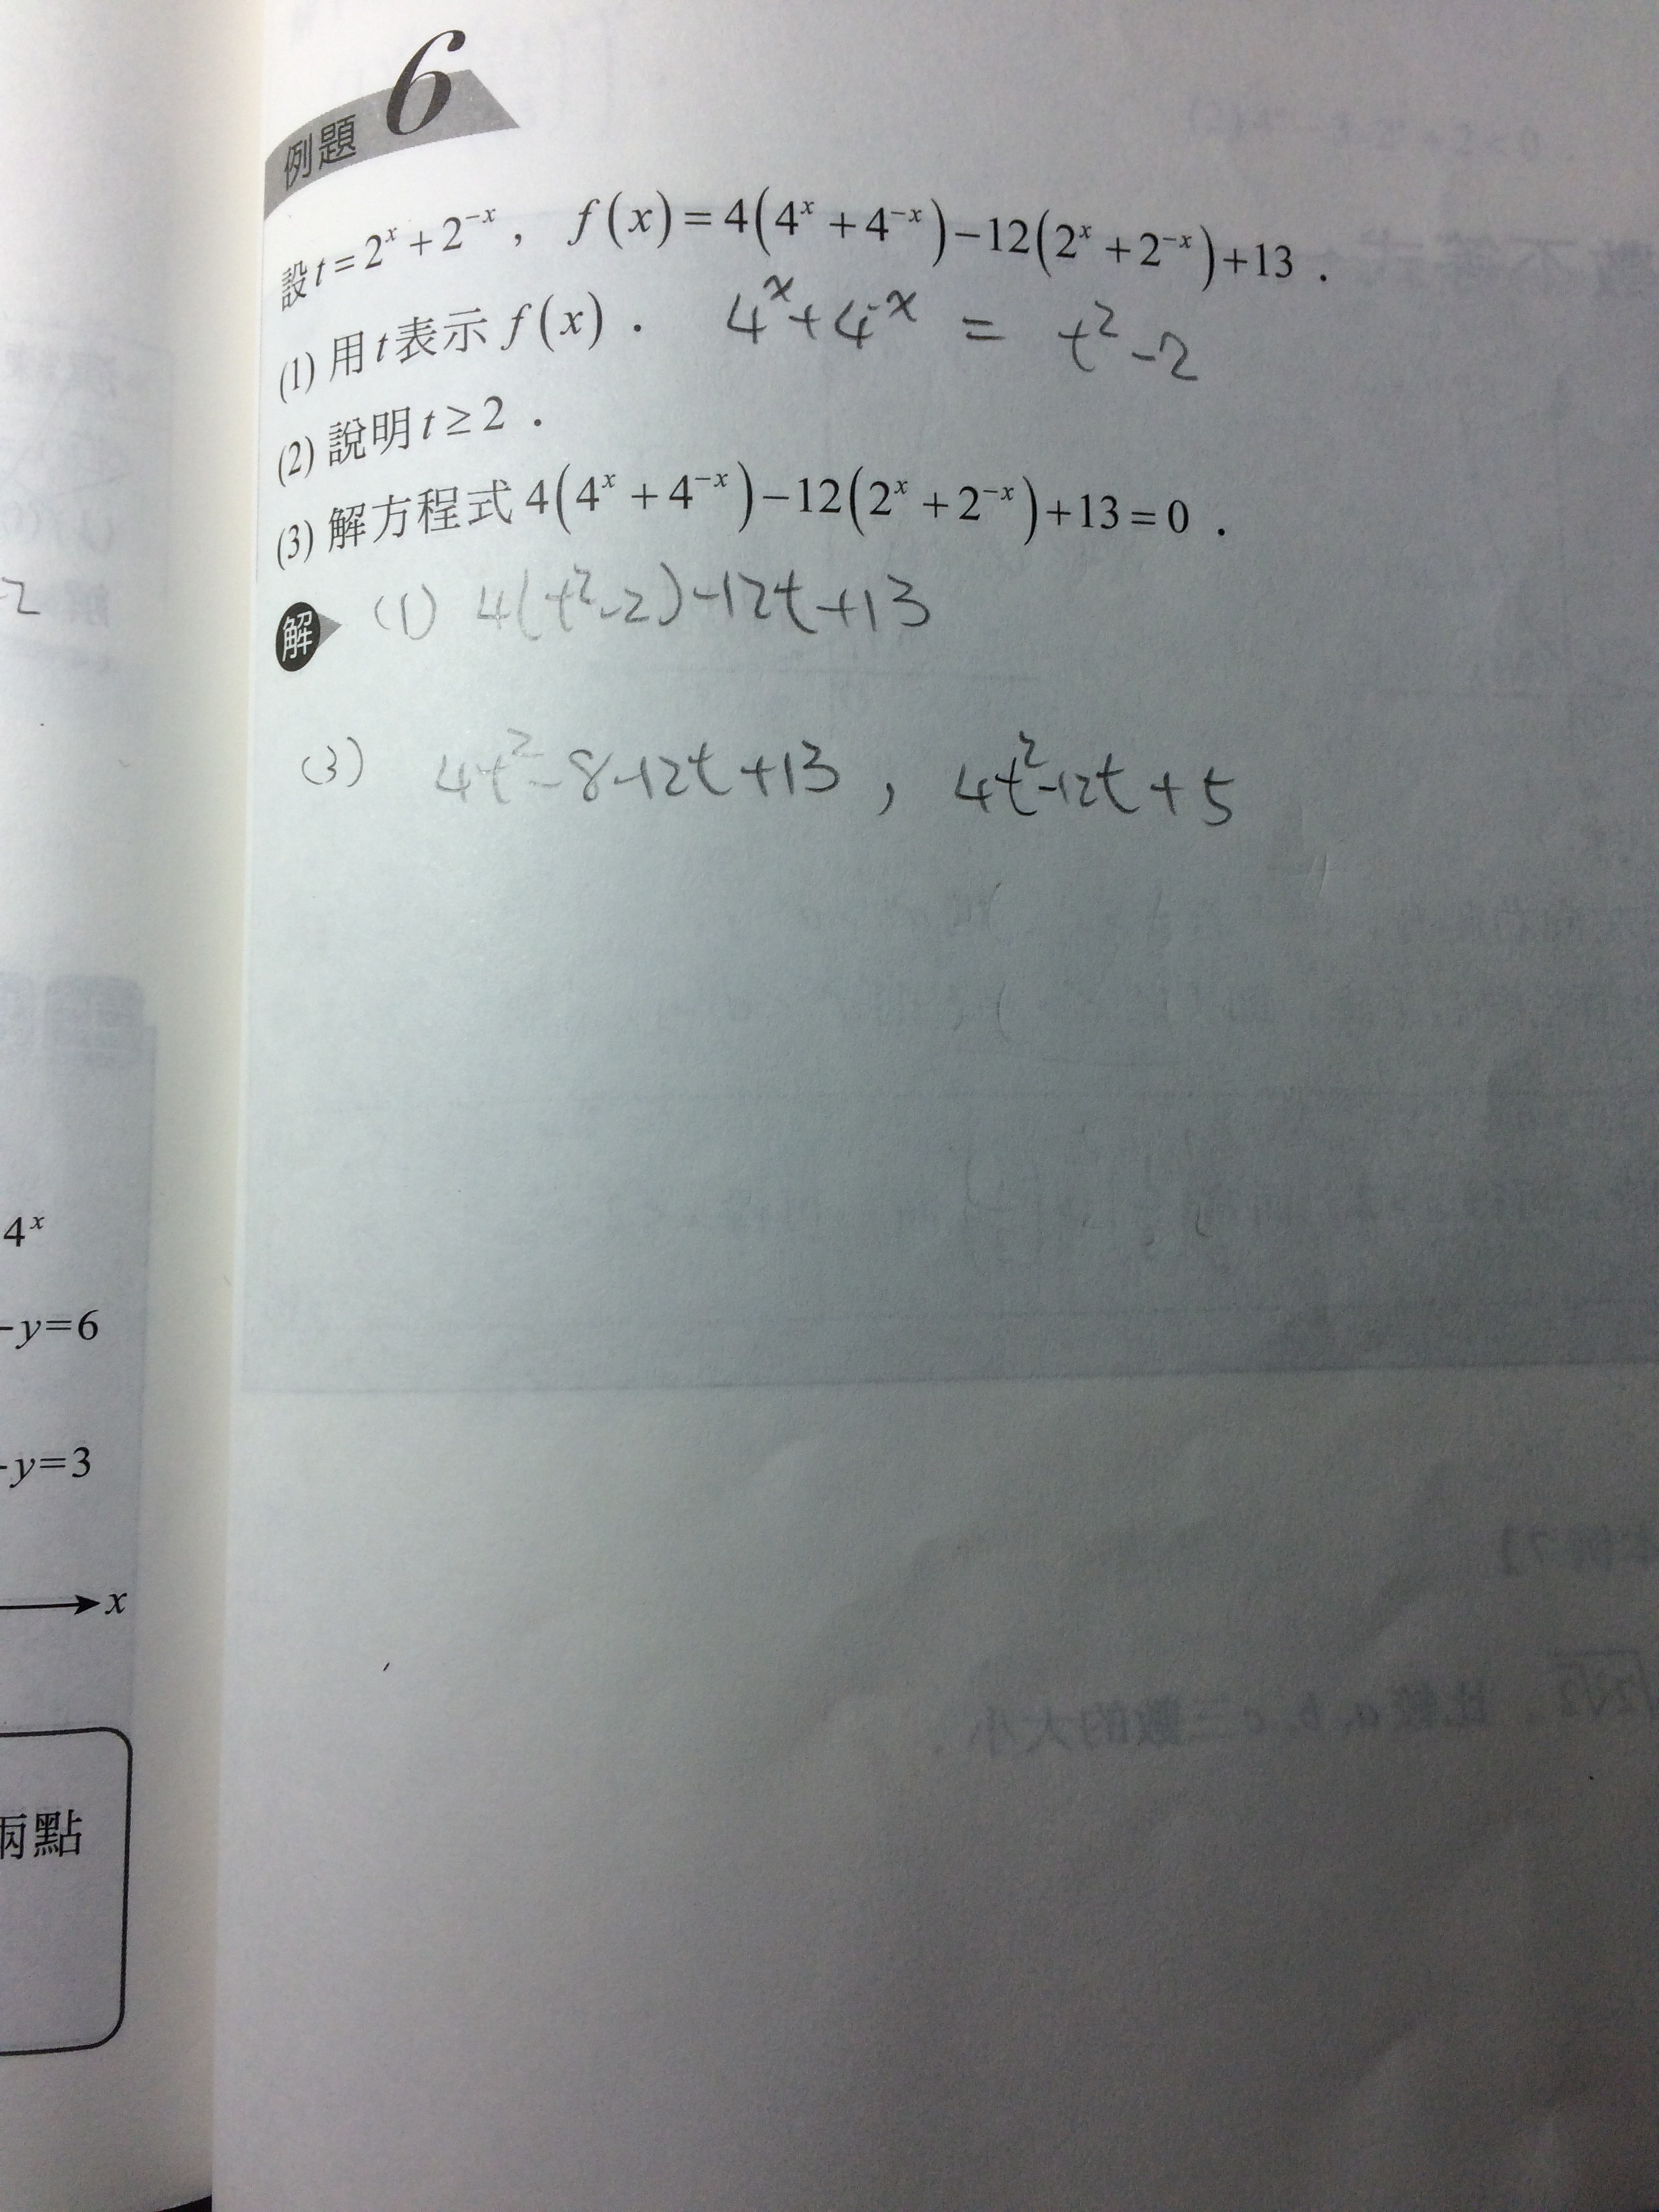 例題 6
設 t = 2^x + 2^{-x} ， f(x) = 4(4^x + 4^{-x}) − 12(2^x + 2^{-x}) + 13 .
(1) 用 t 表示 f(x) . 4^x + 4^{-x} = t^2 - 2
(2) 說明 t ≥ 2 .
(3) 解方程式 4(4^x + 4^{-x}) − 12(2^x + 2^{-x}) + 13 = 0 .
解 (1) 4(t^2-2)-12t+13
(3) 4t^2-8-12t+13 , 4t^2-12t+5
-2
4^x
-y=6
-y=3
x
兩點
比較 a, b, c 三數的大小 .